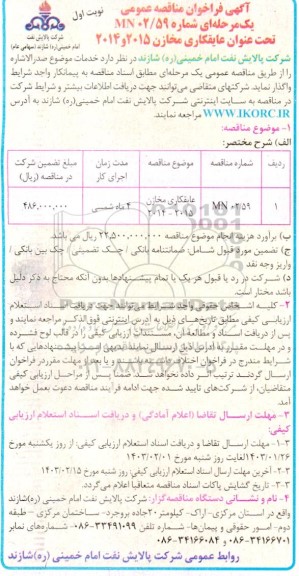 آگهی فراخوان مناقصه عمومی
نوبت اول
یک‌مرحله‌ای شماره MN ۰۲/۵۹
تحت عنوان عایقکاری مخازن ۲۰۱۵و۲۰۱۴
شرکت پالایش نفت
امام خمینی(ره) شازند (سهامی عام)
شرکت پالایش نفت امام خمینی(ره) شازند در نظر دارد خدمات موضوع صدرالاشاره
را از طریق مناقصه عمومی یک مرحله‌ای مطابق اسناد مناقصه به پیمانکار واجد شرایط
واگذار نماید. شرکتهای متقاضی می‌توانند جهت دریافت اطلاعات بیشتر و شرایط شرکت
در مناقصه به سایت اینترنتی شرکت پالایش نفت امام خمینی (ره) شازند به آدرس
WWW.IKORC.IR مراجعه نمایند.
۱- موضوع مناقصه:
الف) شرح مختصر:
ردیف شماره مناقصه موضوع مناقصه مدت زمان اجرای کار مبلغ تضمین شرکت در مناقصه (ریال)
۱ MN ۰۲/۵۹ عایقکاری مخازن ۲۰۱۵ - ۲۰۱۴ ۴ ماه شمسی ۴۸۶,۰۰۰,۰۰۰
ب) برآورد هزینه انجام موضوع مناقصه ۲۲,۵۰۰,۰۰۰,۰۰۰ ریال می باشد.
ج) تضمین مورد قبول شامل: ضمانتنامه بانکی / چک تضمینی / چک بین بانکی /
واریز وجه نقد
د) شرکت در رد یا قبول هر یک یا تمام پیشنهادها بدون آنکه محتاج به ذکر دلیل
باشد مختار است.
۲- کلیه اشخاص حقوقی واجد شرایط می‌توانند جهت دریافت اسناد استعلام
ارزیابی کیفی مطابق تاریخ‌های ذیل به آدرس اینترنتی فوق‌الذکر مراجعه نمایند و
پس از دریافت اسناد و مطالعه آن، مستندات ارزیابی کیفی را در قالب لوح فشرده
و در مهلت مقرر به آدرس ذیل ارسال نمایند.
۳- مهلت ارسال تقاضا (اعلام آمادگی) و دریافت اسناد استعلام ارزیابی
کیفی:
۳-۱- مهلت ارسال تقاضا و دریافت اسناد استعلام ارزیابی کیفی: از روز یکشنبه مورخ
۱۴۰۳/۰۱/۲۶ لغایت روز شنبه مورخ ۱۴۰۳/۰۲/۰۱
۳-۲- آخرین مهلت ارسال اسناد استعلام ارزیابی کیفی: روز شنبه مورخ ۱۴۰۳/۰۲/۱۵
۳-۳- تاریخ گشایش پاکات اسناد مناقصه متعاقبا اعلام می‌گردد.
۴- نام و نشانی دستگاه مناقصه‌گزار: شرکت پالایش نفت امام خمینی (ره)شازند
واقع در استان مرکزی- اراک- کیلومتر۲۰جاده بروجرد- ساختمان مرکزی - طبقه
دوم- امور حقوقی و پیمان‌ها- شماره تلفن ۳۳۴۹۱۰۹۹-۰۸۶ شماره‌های نمابر
۳۴۱۶۶۷۰۱-۰۸۶ و ۳۴۱۶۶۰۸۴-۰۸۶
روابط عمومی شرکت پالایش نفت امام خمینی (ره)شازند